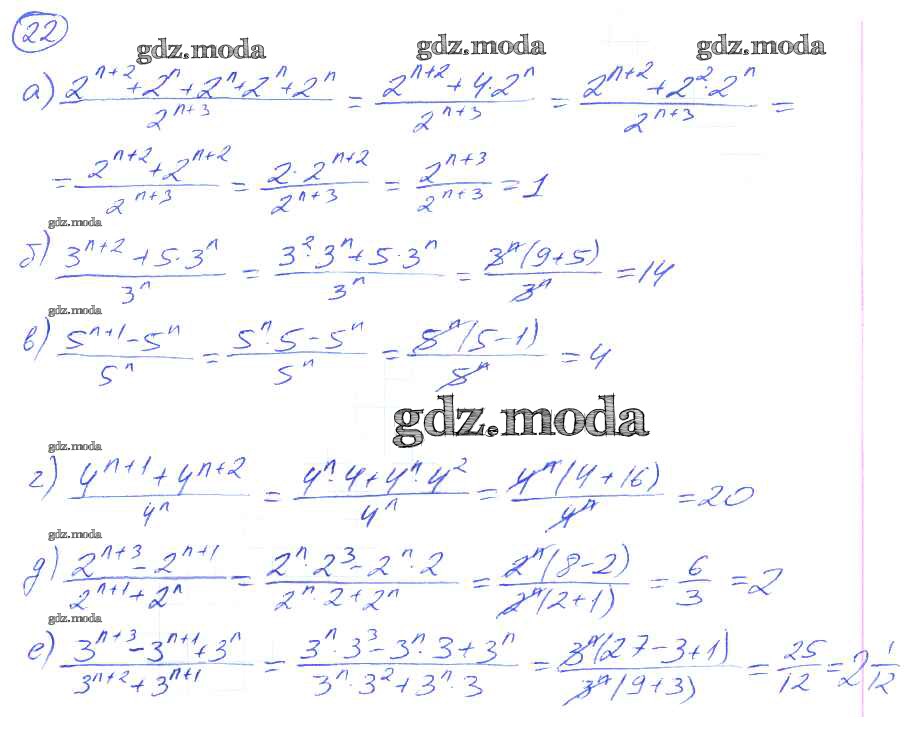 22
gdz.moda gdz.moda gdz.moda
а) (2^(n+2) + 2^n + 2^n + 2^n + 2^n)/2^(n+3) = (2^(n+2) + 4·2^n)/2^(n+3) = (2^(n+2) + 2^2·2^n)/2^(n+3) =
= (2^(n+2) + 2^(n+2))/2^(n+3) = (2·2^(n+2))/2^(n+3) = 2^(n+3)/2^(n+3) = 1
gdz.moda
б) (3^(n+2) + 5·3^n)/3^n = (3^2·3^n + 5·3^n)/3^n = 3^n(9+5)/3^n = 14
gdz.moda
в) (5^(n+1) - 5^n)/5^n = (5^n·5 - 5^n)/5^n = 5^n(5-1)/5^n = 4
gdz.moda
gdz.moda
г) (4^(n+1) + 4^(n+2))/4^n = (4^n·4 + 4^n·4^2)/4^n = 4^n(4+16)/4^n = 20
gdz.moda
д) (2^(n+3) - 2^(n+1))/(2^(n+1) + 2^n) = (2^n·2^3 - 2^n·2)/(2^n·2 + 2^n) = 2^n(8-2)/2^n(2+1) = 6/3 = 2
gdz.moda
е) (3^(n+3) - 3^(n+1) + 3^n)/(3^(n+2) + 3^(n+1)) = (3^n·3^3 - 3^n·3 + 3^n)/(3^n·3^2 + 3^n·3) = 3^n(27-3+1)/3^n(9+3) = 25/12 = 2 1/12